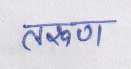 तरूण